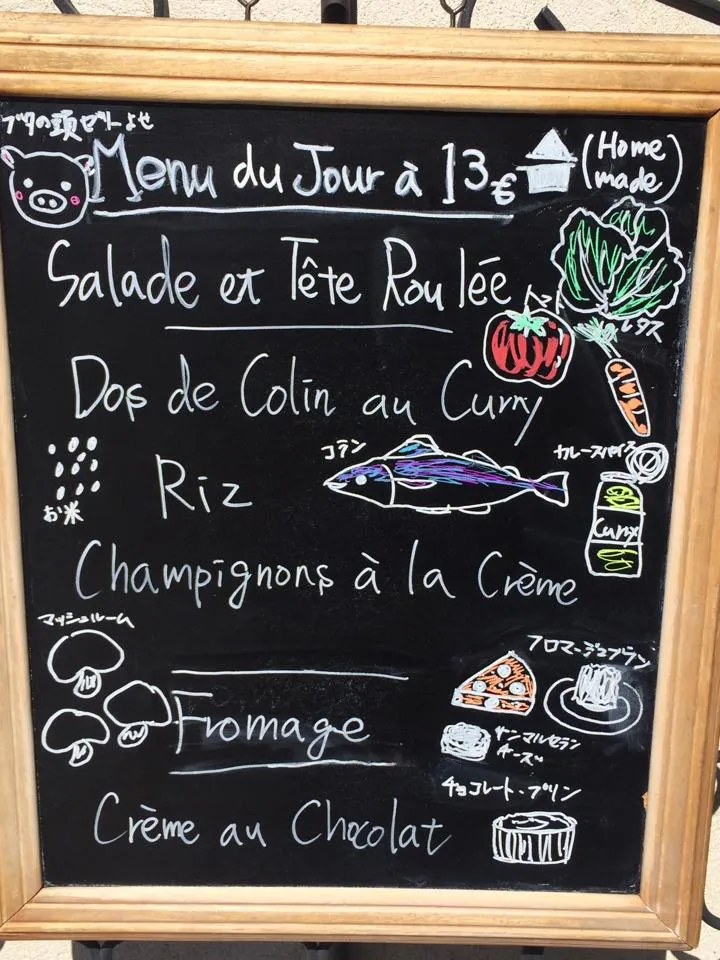 ブタの頭ゼリーよせ
Menu du Jour à 13€
(Home made)
Salade et Tête Roulée
レタス
Dos de Colin au Curry
コラン
カレースパイス
Riz
お米
Curry
Champignons à la Crème
マッシュルーム
フロマージュブラン
Fromage
サンマルセラン
チーズ
チョコレート・プリン
Crème au Chocolat